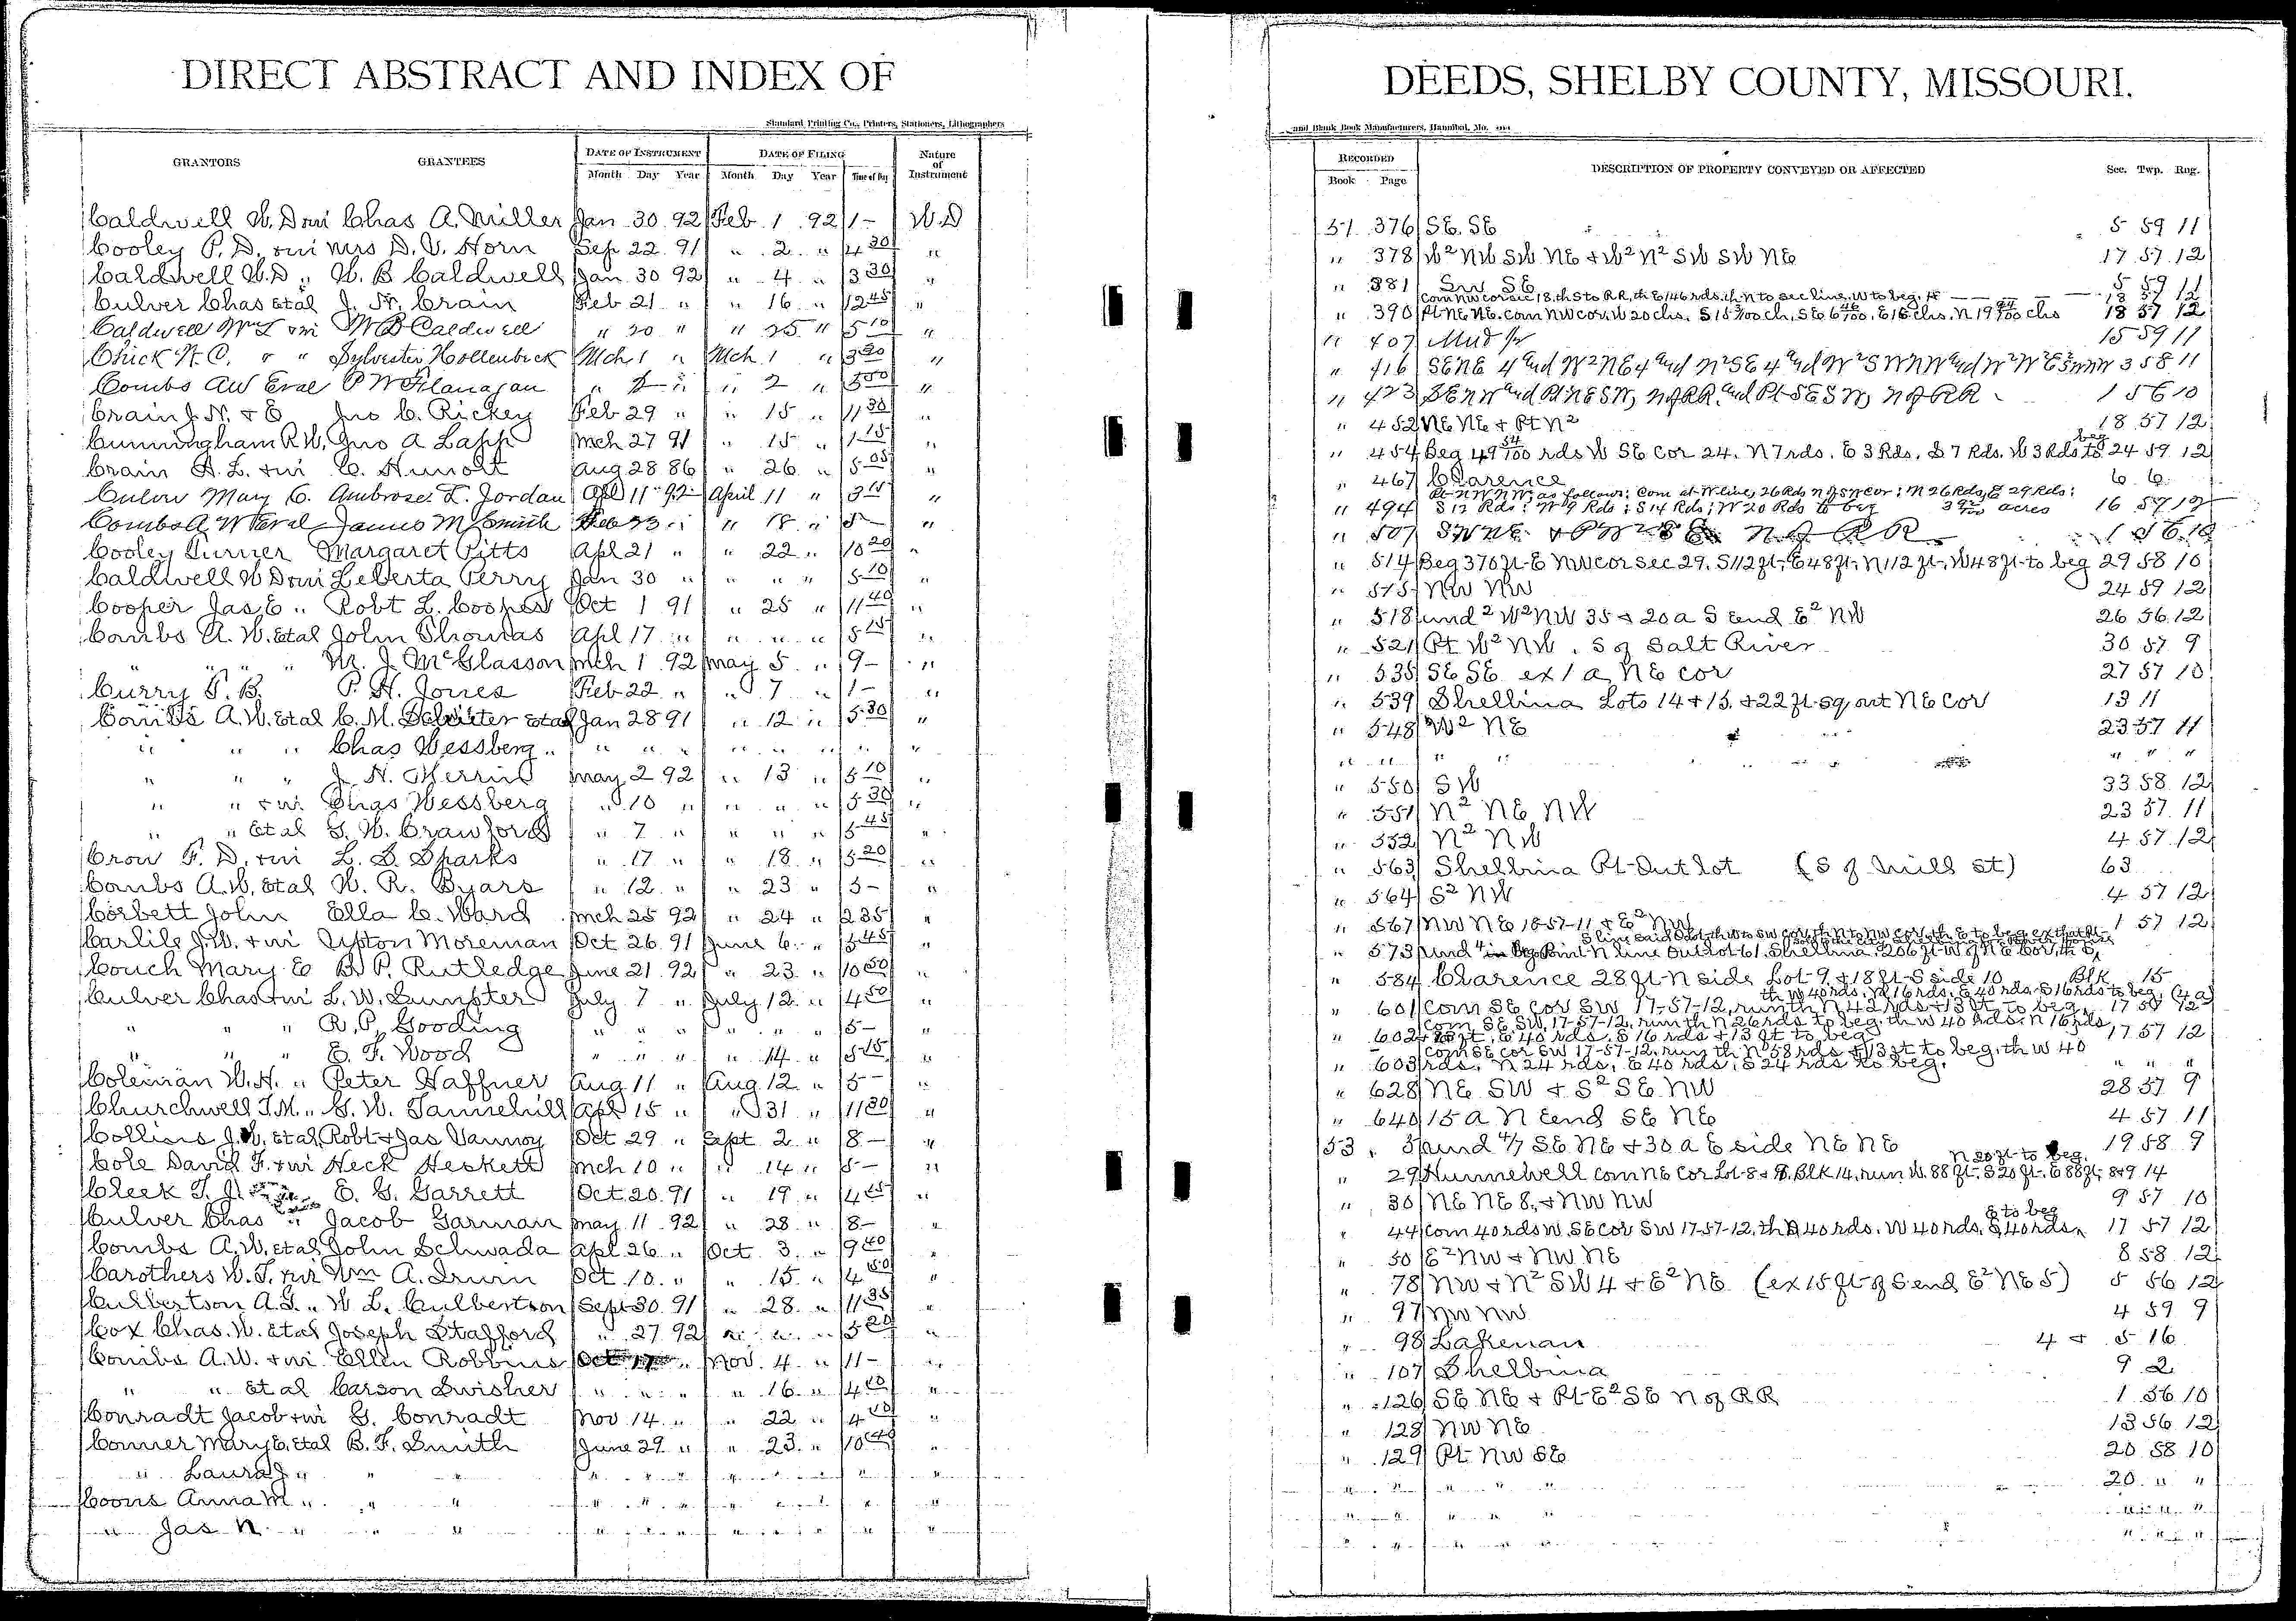 DIRECT ABSTRACT AND INDEX OF
Standard Printing Co., Printers, Stationers, Lithographers
GRANTORS GRANTEES DATE OF INSTRUMENT DATE OF FILING Nature of Instrument
Month Day Year Month Day Year Time of Day
Caldwell W. D wi Chas A. Miller Jan 30 92 Feb 1 92 1- W.D
Cooley P. D. + wi Mrs D. V. Horn Sep 22 91 " 2 " 4 30 "
Caldwell W.D " W. B Caldwell Jan 30 92 " 4 " 3 30 "
Culver Chas Etal J. N. Crain Feb 21 " " 16 " 12 45 "
Caldwell Wm L + wi W B Caldwell " 20 " " 25 " 5 10 "
Chick N. C. " " Sylvester Hollenbeck Mch 1 " Mch 1 " 3 20 "
Combs AW Etal P W Flanagan " " " 2 " 5 00 "
Crain J. N. + E Jno C. Rickey Feb 29 " " 15 " 11 30 "
Cunningham R W, Jno A Lapp Mch 27 91 " 15 " 1 15 "
Crain A. L. + wi C. Hunolt Aug 28 86 " 26 " 5 05 "
Culow Mary C. Ambrose L. Jordan Apl 11 92 April 11 " 3 15 "
Combs A W Etal James M Smith Feb 23 " " 18 " 5- "
Cooley Turner Margaret Pitts Apl 21 " " 22 " 10 20 "
Caldwell W D wi Leberta Perry Jan 30 " " " " 5 10 "
Cooper Jas E " Robt L. Cooper Oct 1 91 " 25 " 11 40 "
Combs A. W. Etal John Thomas Apl 17 " " " " 5 15 "
" " " " M. J. McGlasson Mch 1 92 May 5 " 9- "
Curry T. B. P. H. Jones Feb 22 " " 7 " 1- "
Combs A.W. Etal C. M. Etal Jan 28 91 " 12 " 5 30 "
" " " Chas Wessberg " " " " " " " " "
" " " J. H. Merrin May 2 92 " 13 " 5 10 "
" " + wi Chas Wessberg " 10 " " " " 5 30 "
" " Etal G. W. Crawford " 7 " " " " 5 45 "
Crow F. D. + wi L. S. Sparks " 17 " " 18 " 5 20 "
Combs A.W. Etal W. R. Byars " 12 " " 23 " 5- "
Corbett John Ella C. Ward Mch 25 92 " 24 " 2 35 "
Carlile J.W. + wi Upton Moreman Oct 26 91 June 6 " 5 45 "
Couch Mary E B. P. Rutledge June 21 92 " 23 " 10 50 "
Culver Chas + wi L. W. Sumpter July 7 " July 12 " 4 50 "
" " " R. P. Gooding " " " " " " 5- "
" " " E. F. Wood " " " " 14 " 5 15 "
Coleman W. H. " Peter Haffner Aug 11 " Aug 12 " 5- "
Churchwell T.M. " G. W. Tannehill Apl 15 " " 31 " 11 30 "
Collins J.W. Etal, Robt + Jas Vannoy Oct 29 " Sept 2 " 8- "
Cole David F. + wi Heck Heskett Mch 10 " " 14 " 5- "
Cleek T. J. E. G. Garrett Oct 20 91 " 19 " 4 45 "
Culver Chas " Jacob Garman May 11 92 " 28 " 8- "
Combs A.W. Etal John Schwada Apl 26 " Oct 3 " 9 40 "
Carothers W. T. + wi Wm A. Irwin Oct 10 " " 15 " 4 50 "
Culbertson A.G. " W L. Culbertson Sept 30 91 " 28 " 11 35 "
Cox Chas. W. Etal Joseph Stafford " 27 92 " " " 5 20 "
Combs A.W. + wi Ellen Robbins Oct 17 " Nov. 4 " 11- "
" " Etal Carson Swisher " " " " 16 " 4 10 "
Conradt Jacob + wi G. Conradt Nov 14 " " 22 " 4 10 "
Conner Mary E. Etal B. F. Smith June 29 " " 23 " 10 40 "
" Laura J " " " " " " " " " " "
Coons Anna M " " " " " " " " " " "
" Jas N. " " " " " " " " " " "
DEEDS, SHELBY COUNTY, MISSOURI.
and Blank Book Manufacturers, Hannibal, Mo.
RECORDED DESCRIPTION OF PROPERTY CONVEYED OR AFFECTED Sec. Twp. Rng.
Book Page
51 376 SE. SE 5 59 11
" 378 W² NW SW NE + W² N² SW SW NE 17 57 12
" 381 SW SE 5 59 11
Com NW cor sec 18, th S to RR, th E 146 rds, th N to sec line, W to beg. 18 57 12
" 390 Pt NE NE. Com NW cor, W 20 chs. 18 57 12
" 407 15 59 11
" 416 SE NE 4 und W² NE 4 und N² SE 4 und W² SW NW und 3 58 11
" 423 SE NW und Pt NE SW, N of RR. und Pt SE SW, N of RR 1 56 10
" 452 NE NE + Pt N² 18 57 12
" 454 Beg 49 54/100 rds W SE Cor 24. N 7 rds. E 3 Rds. S 7 Rds. W 3 Rds to beg 24 59 12
" 467 Clarence 6 6
Pt NW NW, as follows: Com at W line, 26 Rds N of SW cor; N 26 Rds; E 29 Rds;
" 494 S 12 Rds; W 9 Rds; S 14 Rds; W 20 Rds to beg acres 16 57 12
" 507 SW NE N of RR 1 56 10
" 514 Beg 370 ft E NW cor sec 29, S 112 ft, E 48 ft, N 112 ft, W 48 ft to beg 29 58 10
" 515 NW NW 24 59 12
" 518 und ² W² NW 35 + 20 a S end E² NW 26 56 12
" 521 Pt W² NW. S of Salt River 30 57 9
" 535 SE SE ex 1 a NE cor 27 57 10
" 539 Shelbina Lots 14 + 15, + 22 ft sq out NE Cor 13 11
" 548 W² NE 23 57 11
" " " " " " "
" 550 SW 33 58 12
" 551 N² NE NW 23 57 11
" 552 N² NW 4 57 12
" 563 Shelbina Pt Outlot (S of Mill St) 63
" 564 S² NW 4 57 12
" 567 NW NE 18-57-11 + E² NW 1 57 12
S line said Outlot, th W to SW cor, th N to NW cor, th E to beg, ex that Pt
" 573 und Beg Point N line Outlot 61, Shelbina, 206 ft W of NE Cor, th S
" 584 Clarence 28 ft N side Lot 9 + 18 ft S side 10 Blk 15
th W 40 rds, N 16 rds, E 40 rds, S 16 rds to beg. (4 a)
" 601 Com SE cor SW 17-57-12, run th N 42 rds + 13 ft to beg. 17 57 12
Com SE SW, 17-57-12, run th N 26 rds to beg. th W 40 rds. N 16 rds,
" 602 + 13 ft, E 40 rds, S 16 rds + 13 ft to beg 17 57 12
Com SE cor SW 17-57-12, run th N 58 rds + 13 ft to beg. th W 40
" 603 rds, N 24 rds, E 40 rds, S 24 rds to beg. " " "
" 628 NE SW + S² SE NW 28 57 9
" 640 15 a N end SE NE 4 57 11
53 5 und 4/7 SE NE + 30 a E side NE NE 19 58 9
N 20 ft to beg.
" 29 Hunnewell com NE Cor Lot 8 + 9, Blk 14, run W. 88 ft, S 20 ft, E 88 ft, 8+9 14
" 30 NE NE 8, + NW NW 9 57 10
E to beg
" 44 Com 40 rds W SE cor SW 17-57-12, th N 40 rds. W 40 rds. S 40 rds 17 57 12
" 50 E² NW + NW NE 8 58 12
" 78 NW + N² SW 4 + E² NE (ex 15 ft of S end E² NE 5) 5 56 12
" 97 NW NW 4 59 9
" 98 Lakenan 4 + 5 16
" 107 Shelbina 9 2
" 126 SE NE + Pt E² SE N of RR 1 56 10
" 128 NW NE 13 56 12
" 129 Pt NW SE 20 58 10
" " " " " 20 " "
" " " " " " " "
" " " " " " " "